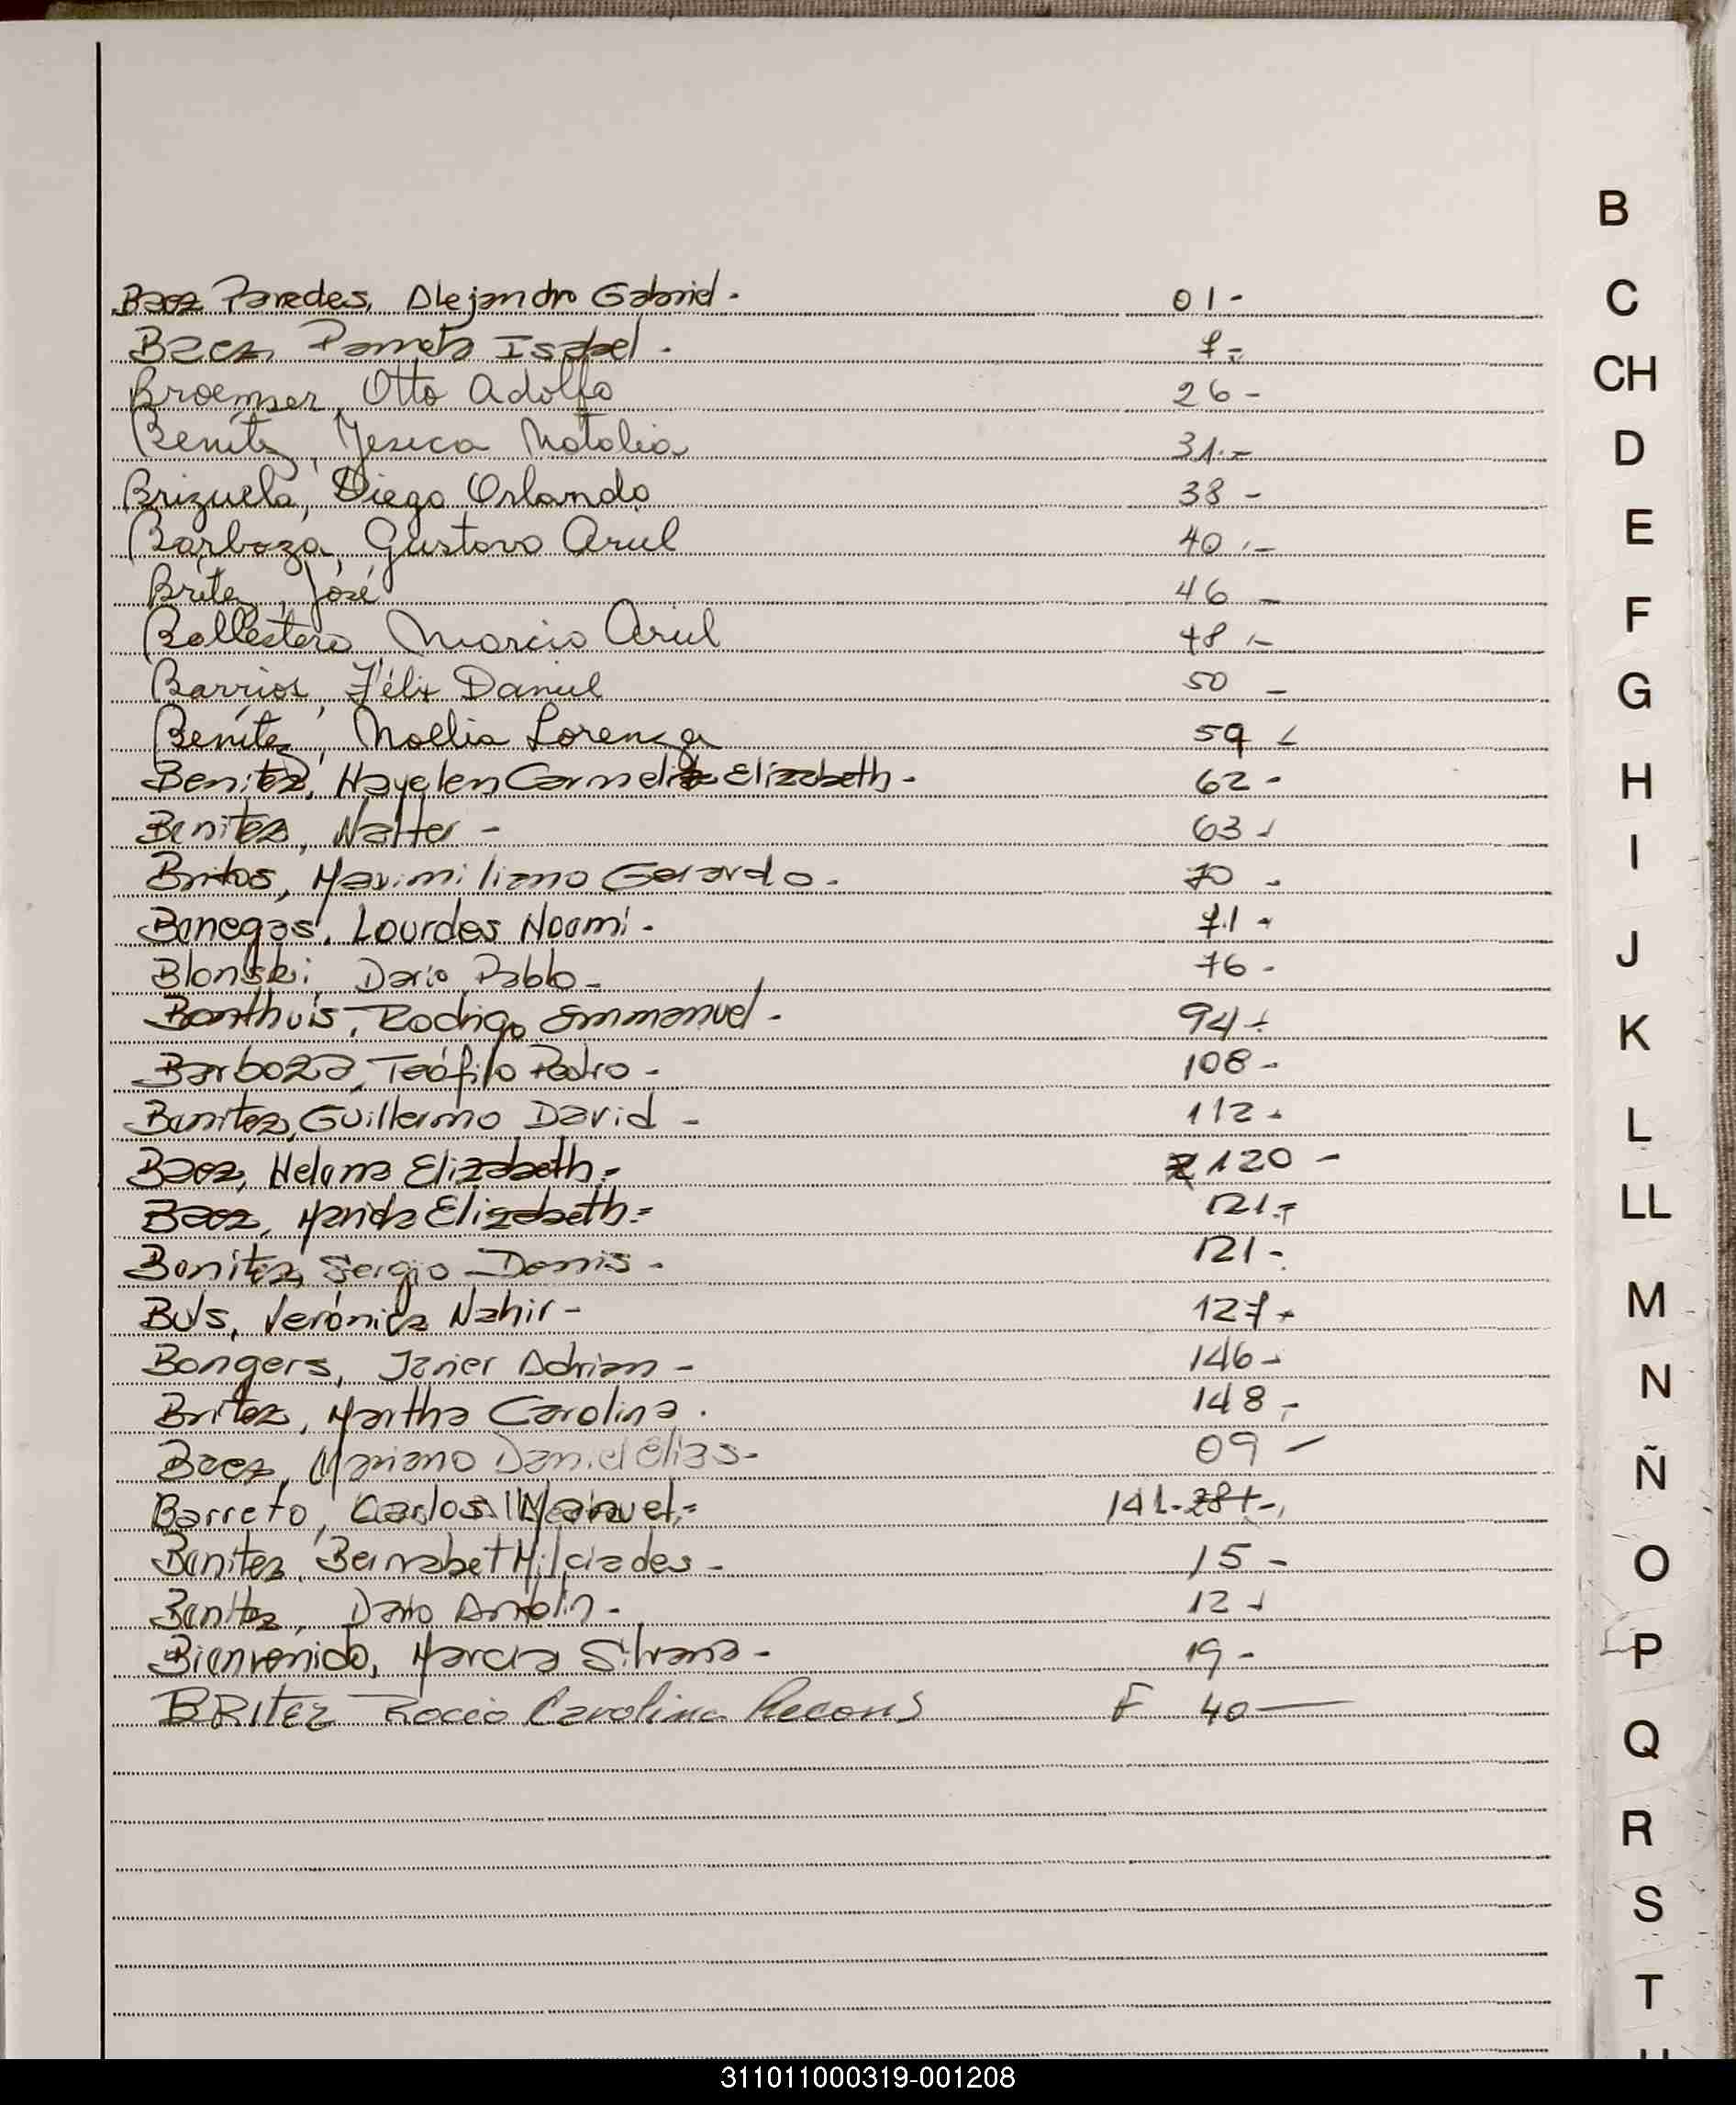 B
Baez Paredes, Alejandro Gabriel. 01-
C
Baez, Pamela Isabel. 7-
CH
Broemser, Otto Adolfo 26-
Benítez, Jesica Natalia 31.-
D
Brizuela, Diego Orlando 38-
Barboza, Gustavo Ariel 40.-
E
Britez, José 46-
Ballestero Marcio Ariel 48.-
F
Barrios, Félix Daniel 50-
G
Benítez, Noelia Lorenza 59-
Benitez, Hayelen Carmelita Elizabeth. 62-
H
Benitez, Walter- 63-
Britos, Maximiliano Gerardo. 70-
I
Banegas, Lourdes Noemi. 71-
J
Blonski, Dario Pablo- 76-
Bonthuis, Rodrigo Emmanuel. 94-
K
Barboza, Teófilo Pedro- 108-
Benitez, Guillermo David- 112-
L
Baez, Helena Elizabeth= 120-
LL
Baez, Elizabeth= 121-
Benitez, Sergio Denis. 121-
M
Buls, Verónica Nahir- 127-
Bongers, Javier Adrian- 146-
N
Britez, Martha Carolina. 148-
Baez, Mariano Daniel Elias- 09-
Ñ
Barreto, Carlos Manuel= 141-
Benitez, Bernabet Milciades- 15-
O
Benitez, Dario Antolin- 12-
Bienvenido, Marcia Silvana- 19-
P
BRITEZ Rocio Carolina Recons F 40-
Q
R
S
T
311011000319-001208